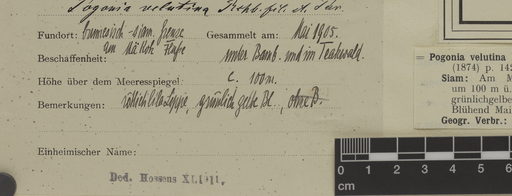 Pogonia velutina Rchb. fil. et Par.
Fundort: burmesisch-siam. Grenze Gesammelt am: Mai 1905.
am
Beschaffenheit: unter Bamb. und im Teakwald.
Höhe über dem Meeresspiegel: c. 100m.
Bemerkungen: rötlichlila Lippe, grünlich gelbe Bl., ohne B.
Einheimischer Name:
Ded. Hosseus XI.1911.
= Pogonia velutina
(1874) p. 142
Siam: Am M
um 100 m ü.
grünlichgelbe
Blühend Mai
Geogr. Verbr.:
0 1 2 3 4 5
cm